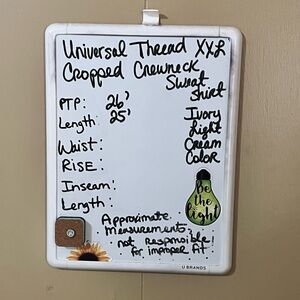 Universal Thread XXL
Cropped Crewneck
Sweat
Shirt
PTP: 26'
Length: 25'
Ivory
Light
Cream
Color
Waist:
Rise:
Inseam:
Length:
Be
the
light
Approximate
Measurements
not responsible
for improper fit!
U BRANDS